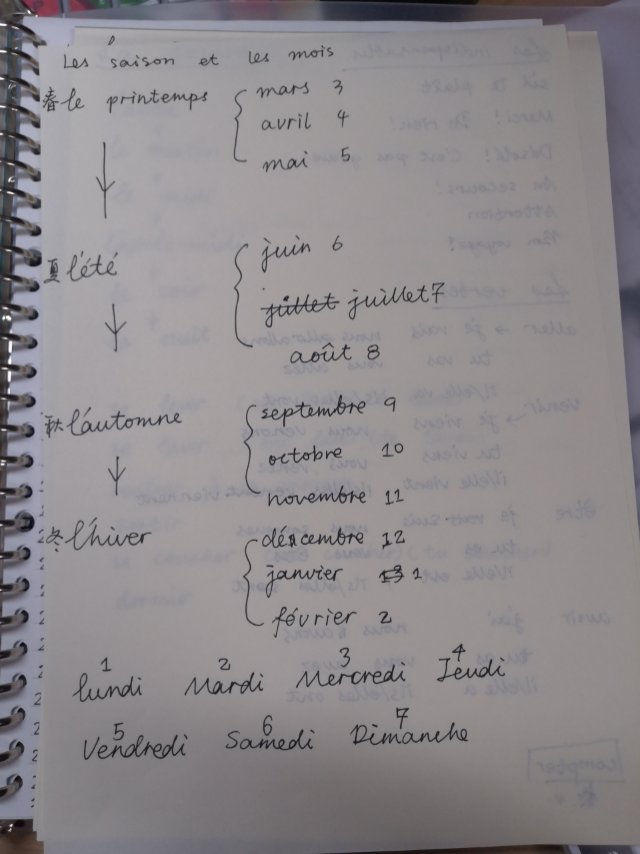 Les saison et les mois
春 le printemps mars 3
avril 4
mai 5
夏 l'été juin 6
juillet juillet 7
août 8
秋 l'automne septembre 9
octobre 10
novembre 11
冬 l'hiver décembre 12
janvier 1
février 2
1 2 3 4
lundi Mardi Mercredi Jeudi
5 6 7
Vendredi Samedi Dimanche